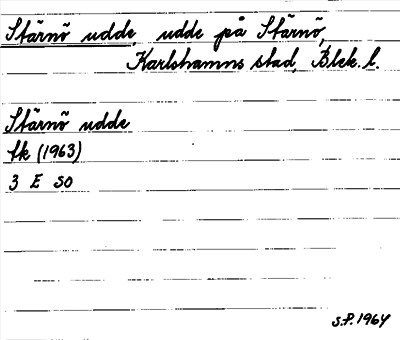 Stärnö udde, udde på Stärnö,
Karlshamns stad, Blek. l.
Stärnö udde
fk (1963)
3 E SO
S.P. 1964